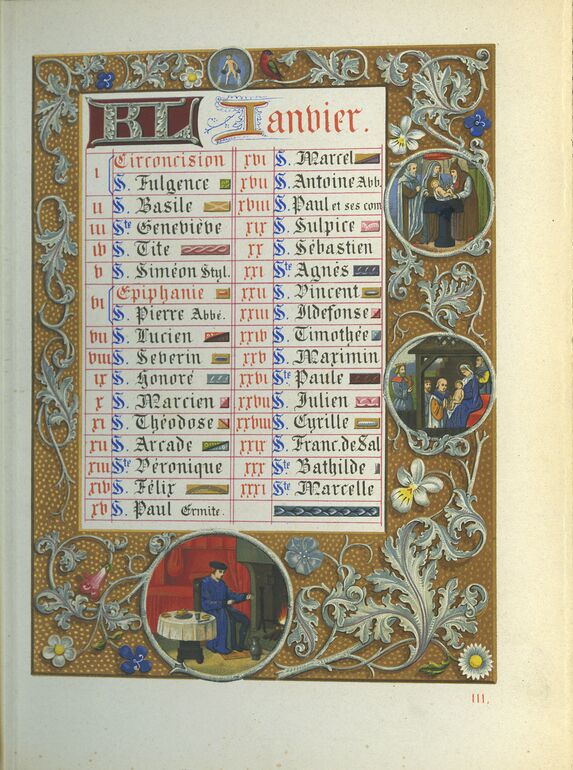 KL Janvier.
I Circoncision
S. Fulgence
II S. Basile
III Ste Geneviève
IV S. Tite
V S. Siméon Styl.
VI Epiphanie
S. Pierre Abbé.
VII S. Lucien
VIII S. Severin
IX S. Honoré
X S. Marcien
XI S. Théodose
XII S. Arcade
XIII Ste Véronique
XIV S. Félix
XV S. Paul Ermite.
XVI S. Marcel
XVII S. Antoine Abb.
XVIII S. Paul et ses com
XIX S. Sulpice
XX S. Sébastien
XXI Ste Agnès
XXII S. Vincent
XXIII S. Ildefonse
XXIV S. Timothée
XXV S. Maximin
XXVI Ste Paule
XXVII S. Julien
XXVIII S. Cyrille
XXIX S. Franc. de Sal
XXX Ste Bathilde
XXXI Ste Marcelle
III.